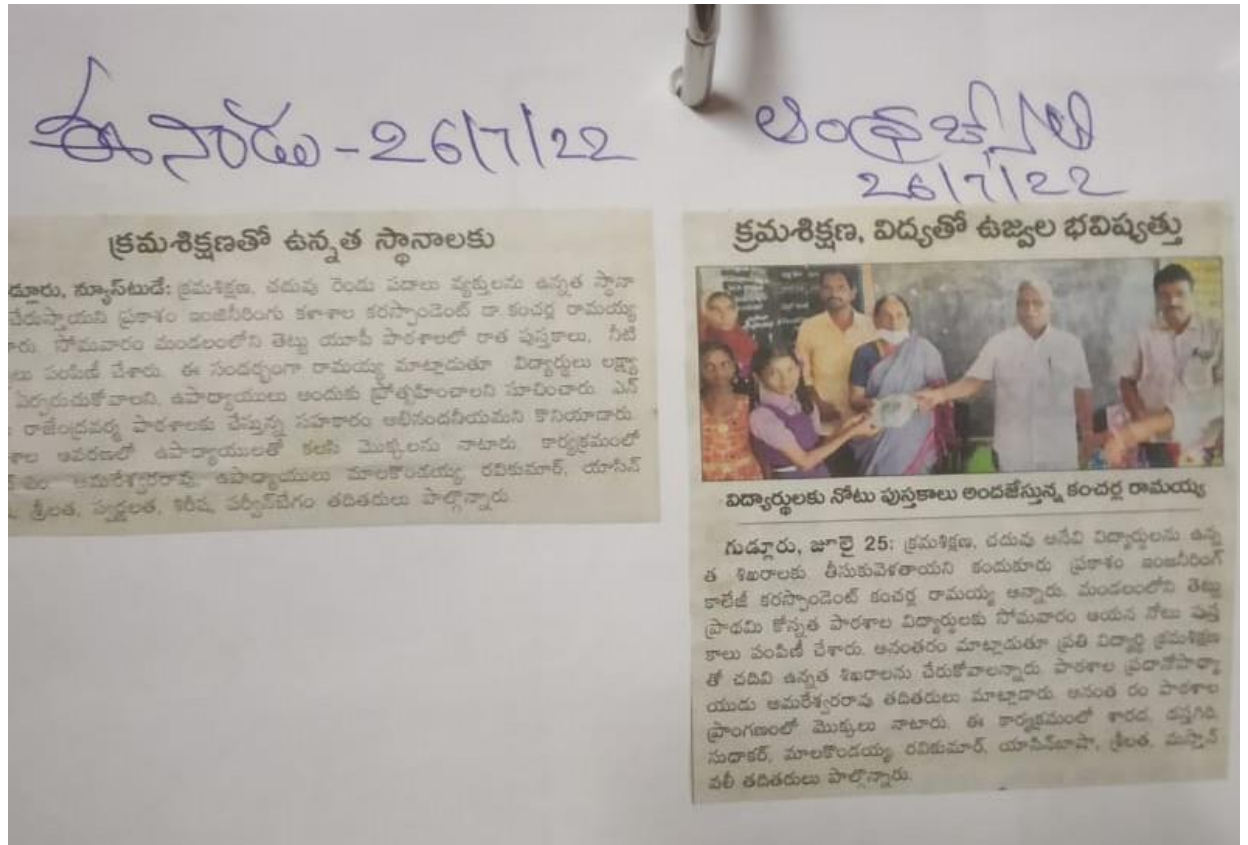 ఈనాడు - 26/7/22
క్రమశిక్షణతో ఉన్నత స్థానాలకు
డ్లూరు, న్యూస్‌టుడే: క్రమశిక్షణ, చదువు రెండు పదాలు వ్యక్తులను ఉన్నత స్థానా
చేరుస్తాయని ప్రకాశం ఇంజినీరింగు కళాశాల కరస్పాండెంట్ డా.కంచర్ల రామయ్య
రు. సోమవారం మండలంలోని తెట్టు యూపీ పాఠశాలలో రాత పుస్తకాలు, నీటి
లు పంపిణీ చేశారు. ఈ సందర్భంగా రామయ్య మాట్లాడుతూ విద్యార్థులు లక్ష్యా
ఏర్పరుచుకోవాలని, ఉపాధ్యాయులు అందుకు ప్రోత్సహించాలని సూచించారు. ఎన్
రాజేంద్రవర్మ పాఠశాలకు చేస్తున్న సహకారం అభినందనీయమని కొనియాడారు.
శాల ఆవరణలో ఉపాధ్యాయులతో కలసి మొక్కలను నాటారు. కార్యక్రమంలో
అమరేశ్వరరావు, ఉపాధ్యాయులు మాలకొండయ్య, రవికుమార్, యాసిన్
శ్రీలత, స్వర్ణలత, శిరీష, పర్వీన్‌బేగం తదితరులు పాల్గొన్నారు
ఆంధ్రజ్యోతి
26/7/22
క్రమశిక్షణ, విద్యతో ఉజ్వల భవిష్యత్తు
విద్యార్థులకు నోటు పుస్తకాలు అందజేస్తున్న కంచర్ల రామయ్య
గుడ్లూరు, జూలై 25: క్రమశిక్షణ, చదువు అనేవి విద్యార్థులను ఉన్న
త శిఖరాలకు తీసుకువెళతాయని కందుకూరు ప్రకాశం ఇంజనీరింగ్
కాలేజీ కరస్పాండెంట్ కంచర్ల రామయ్య అన్నారు. మండలంలోని తెట్టు
ప్రాథమి కోన్నత పాఠశాల విద్యార్థులకు సోమవారం ఆయన నోటు పుస్త
కాలు పంపిణీ చేశారు. అనంతరం మాట్లాడుతూ ప్రతి విద్యార్థి క్రమశిక్షణ
తో చదివి ఉన్నత శిఖరాలను చేరుకోవాలన్నారు. పాఠశాల ప్రధానోపాధ్యా
యుడు అమరేశ్వరరావు తదితరులు మాట్లాడారు. అనంత రం పాఠశాల
ప్రాంగణంలో మొక్కలు నాటారు. ఈ కార్యక్రమంలో శారద, దస్తగిరి,
సుధాకర్, మాలకొండయ్య, రవికుమార్, యాసిన్‌బాషా, శ్రీలత, మస్తాన్
వలీ తదితరులు పాల్గొన్నారు.